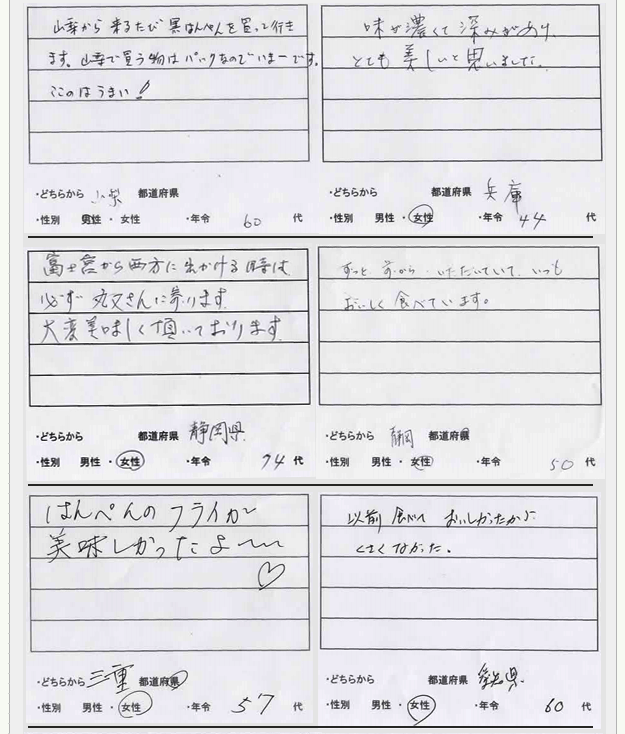 山梨から来るたび黒はんぺんを買って行き
ます。山梨で買う物はパックなのでいま一です。
ここのはうまい!
・どちらから 山梨 都道府県
・性別 男性・女性 ・年令 60 代
味が濃くて深みがあり、
とても美しいと思いました。
・どちらから 兵庫 都道府県
・性別 男性・女性 ・年令 44 代
富士宮から西方に出かける時は
必ず丸又さんに寄ります
大変美味しく頂いております
・どちらから 静岡県 都道府県
・性別 男性・女性 ・年令 74 代
ずっと前からいただいていて、いつも
おいしく食べています。
・どちらから 静岡 都道府県
・性別 男性・女性 ・年令 50 代
はんぺんのフライが
美味しかったよ〜〜
♡
・どちらから 三重 都道府県
・性別 男性・女性 ・年令 57 代
以前食べておいしかったから
くさくなかった。
・どちらから 愛知県 都道府県
・性別 男性・女性 ・年令 60 代